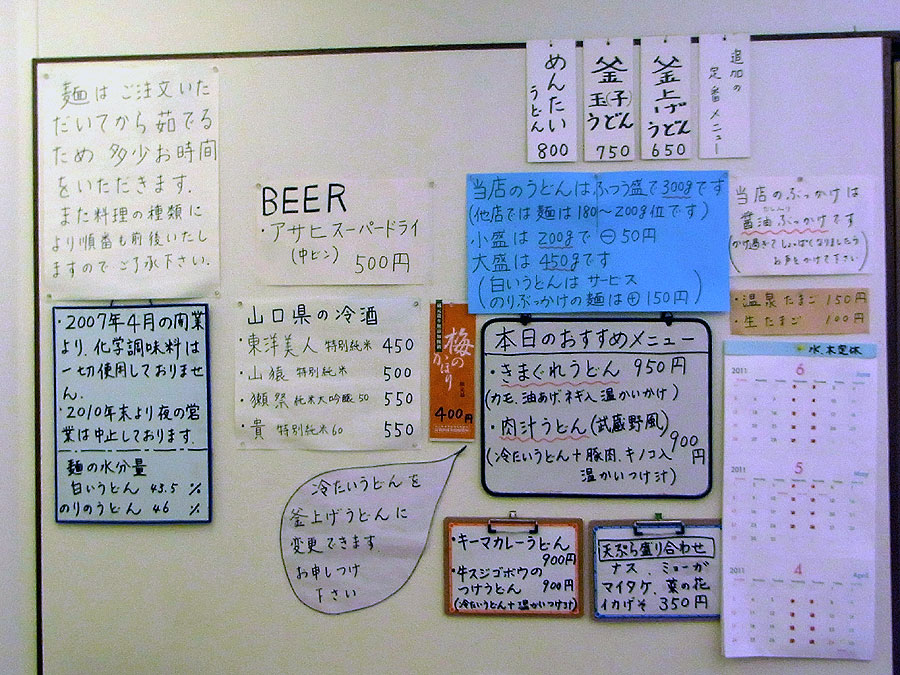 麺はご注文いた
だいてから茹でる
ため多少お時間
をいただきます.
また料理の種類に
より順番も前後いたし
ますのでご了承下さい.
・2007年4月の開業
より、化学調味料は
一切使用しておりませ
ん.
・2010年末より夜の営
業は中止しております.
麺の水分量
白いうどん 43.5 %
のりのうどん 46 %
BEER
・アサヒスーパードライ
(中ビン) 500円
山口県の冷酒
・東洋美人 特別純米 450
・山猿 特別純米 500
・獺祭 純米大吟醸50 550
・貴 特別純米60 550
梅の
かほり
400円
冷たいうどんを
釜上げうどんに
変更できます.
お申しつけ
下さい
追加の
定番メニュー
釜上げうどん
650
釜玉(子)うどん
750
めんたいうどん
800
当店のうどんはふつう盛で300gです
(他店では麺は180〜200g位です)
小盛は200gで㊀50円
大盛は450gです
(白いうどんはサービス
のりぶっかけの麺は⊕150円)
当店のぶっかけは
醤油ぶっかけです
(かけ過ぎてしょっぱくなりましたら
お声をかけて下さい)
・温泉たまご 150円
・生たまご 100円
本日のおすすめメニュー
・きまぐれうどん 950円
(カモ、油あげ、ネギ入 温かいかけ)
・肉汁うどん(武蔵野風)
900円
(冷たいうどん+豚肉、キノコ入
温かいつけ汁)
・キーマカレーうどん
900円
・牛スジゴボウの
つけうどん 900円
(冷たいうどん+温かいつけ汁)
天ぷら盛り合わせ
ナス、ミョーガ
マイタケ、菜の花
イカげそ 350円
水.木定休
2011 6 June
2011 5 May
2011 4 April